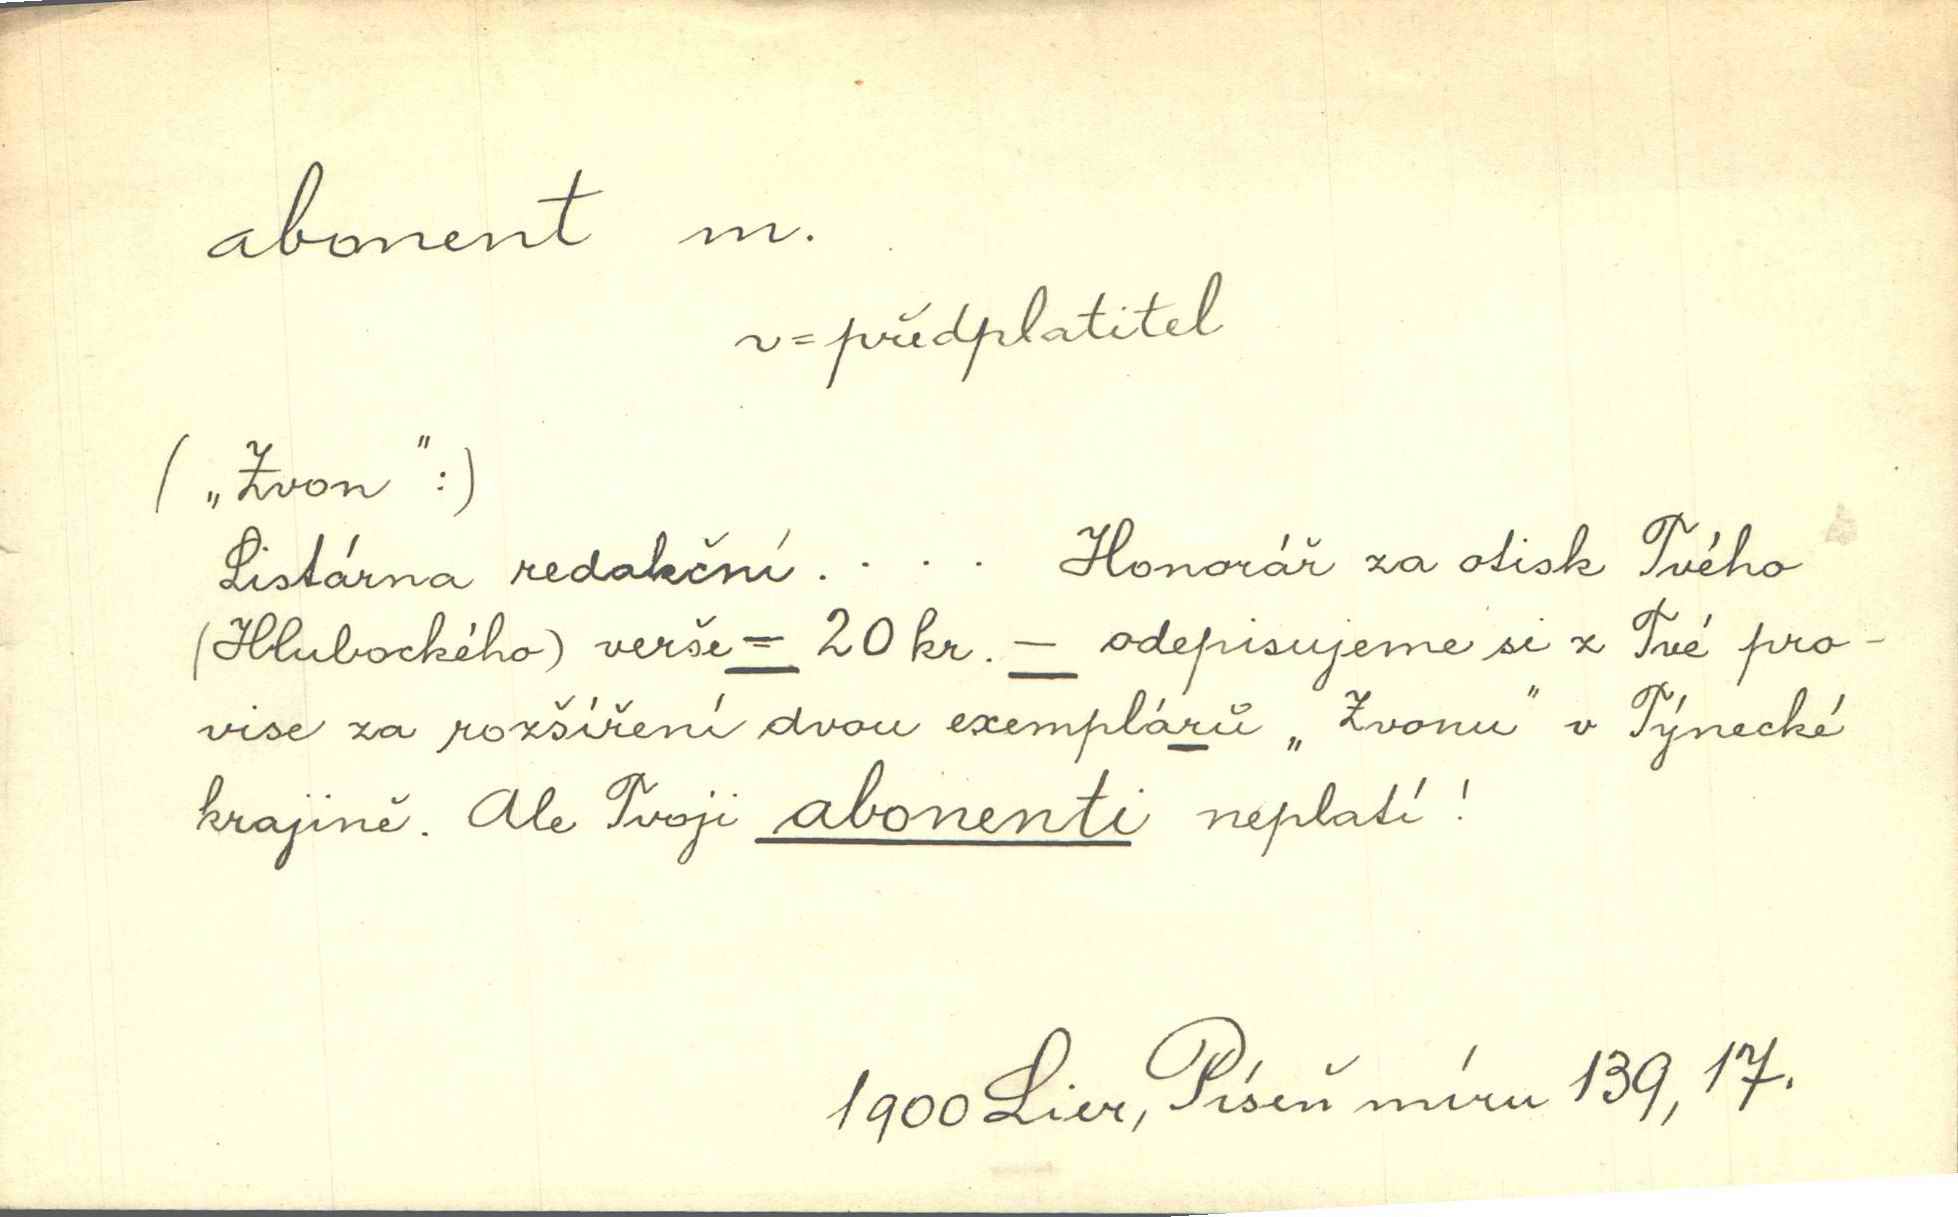 abonent m.
v = předplatitel
( „Zvon":)
Listárna redakční . . . . Honorář za otisk Tvého
(Hlubockého) verše = 20 kr. — odepisujeme si z Tvé pro-
vise za rozšíření dvou exemplárů „Zvonu" v Týnecké
krajině. Ale Tvoji abonenti neplatí!
1900 Lier, Píseň míru 139, 17.